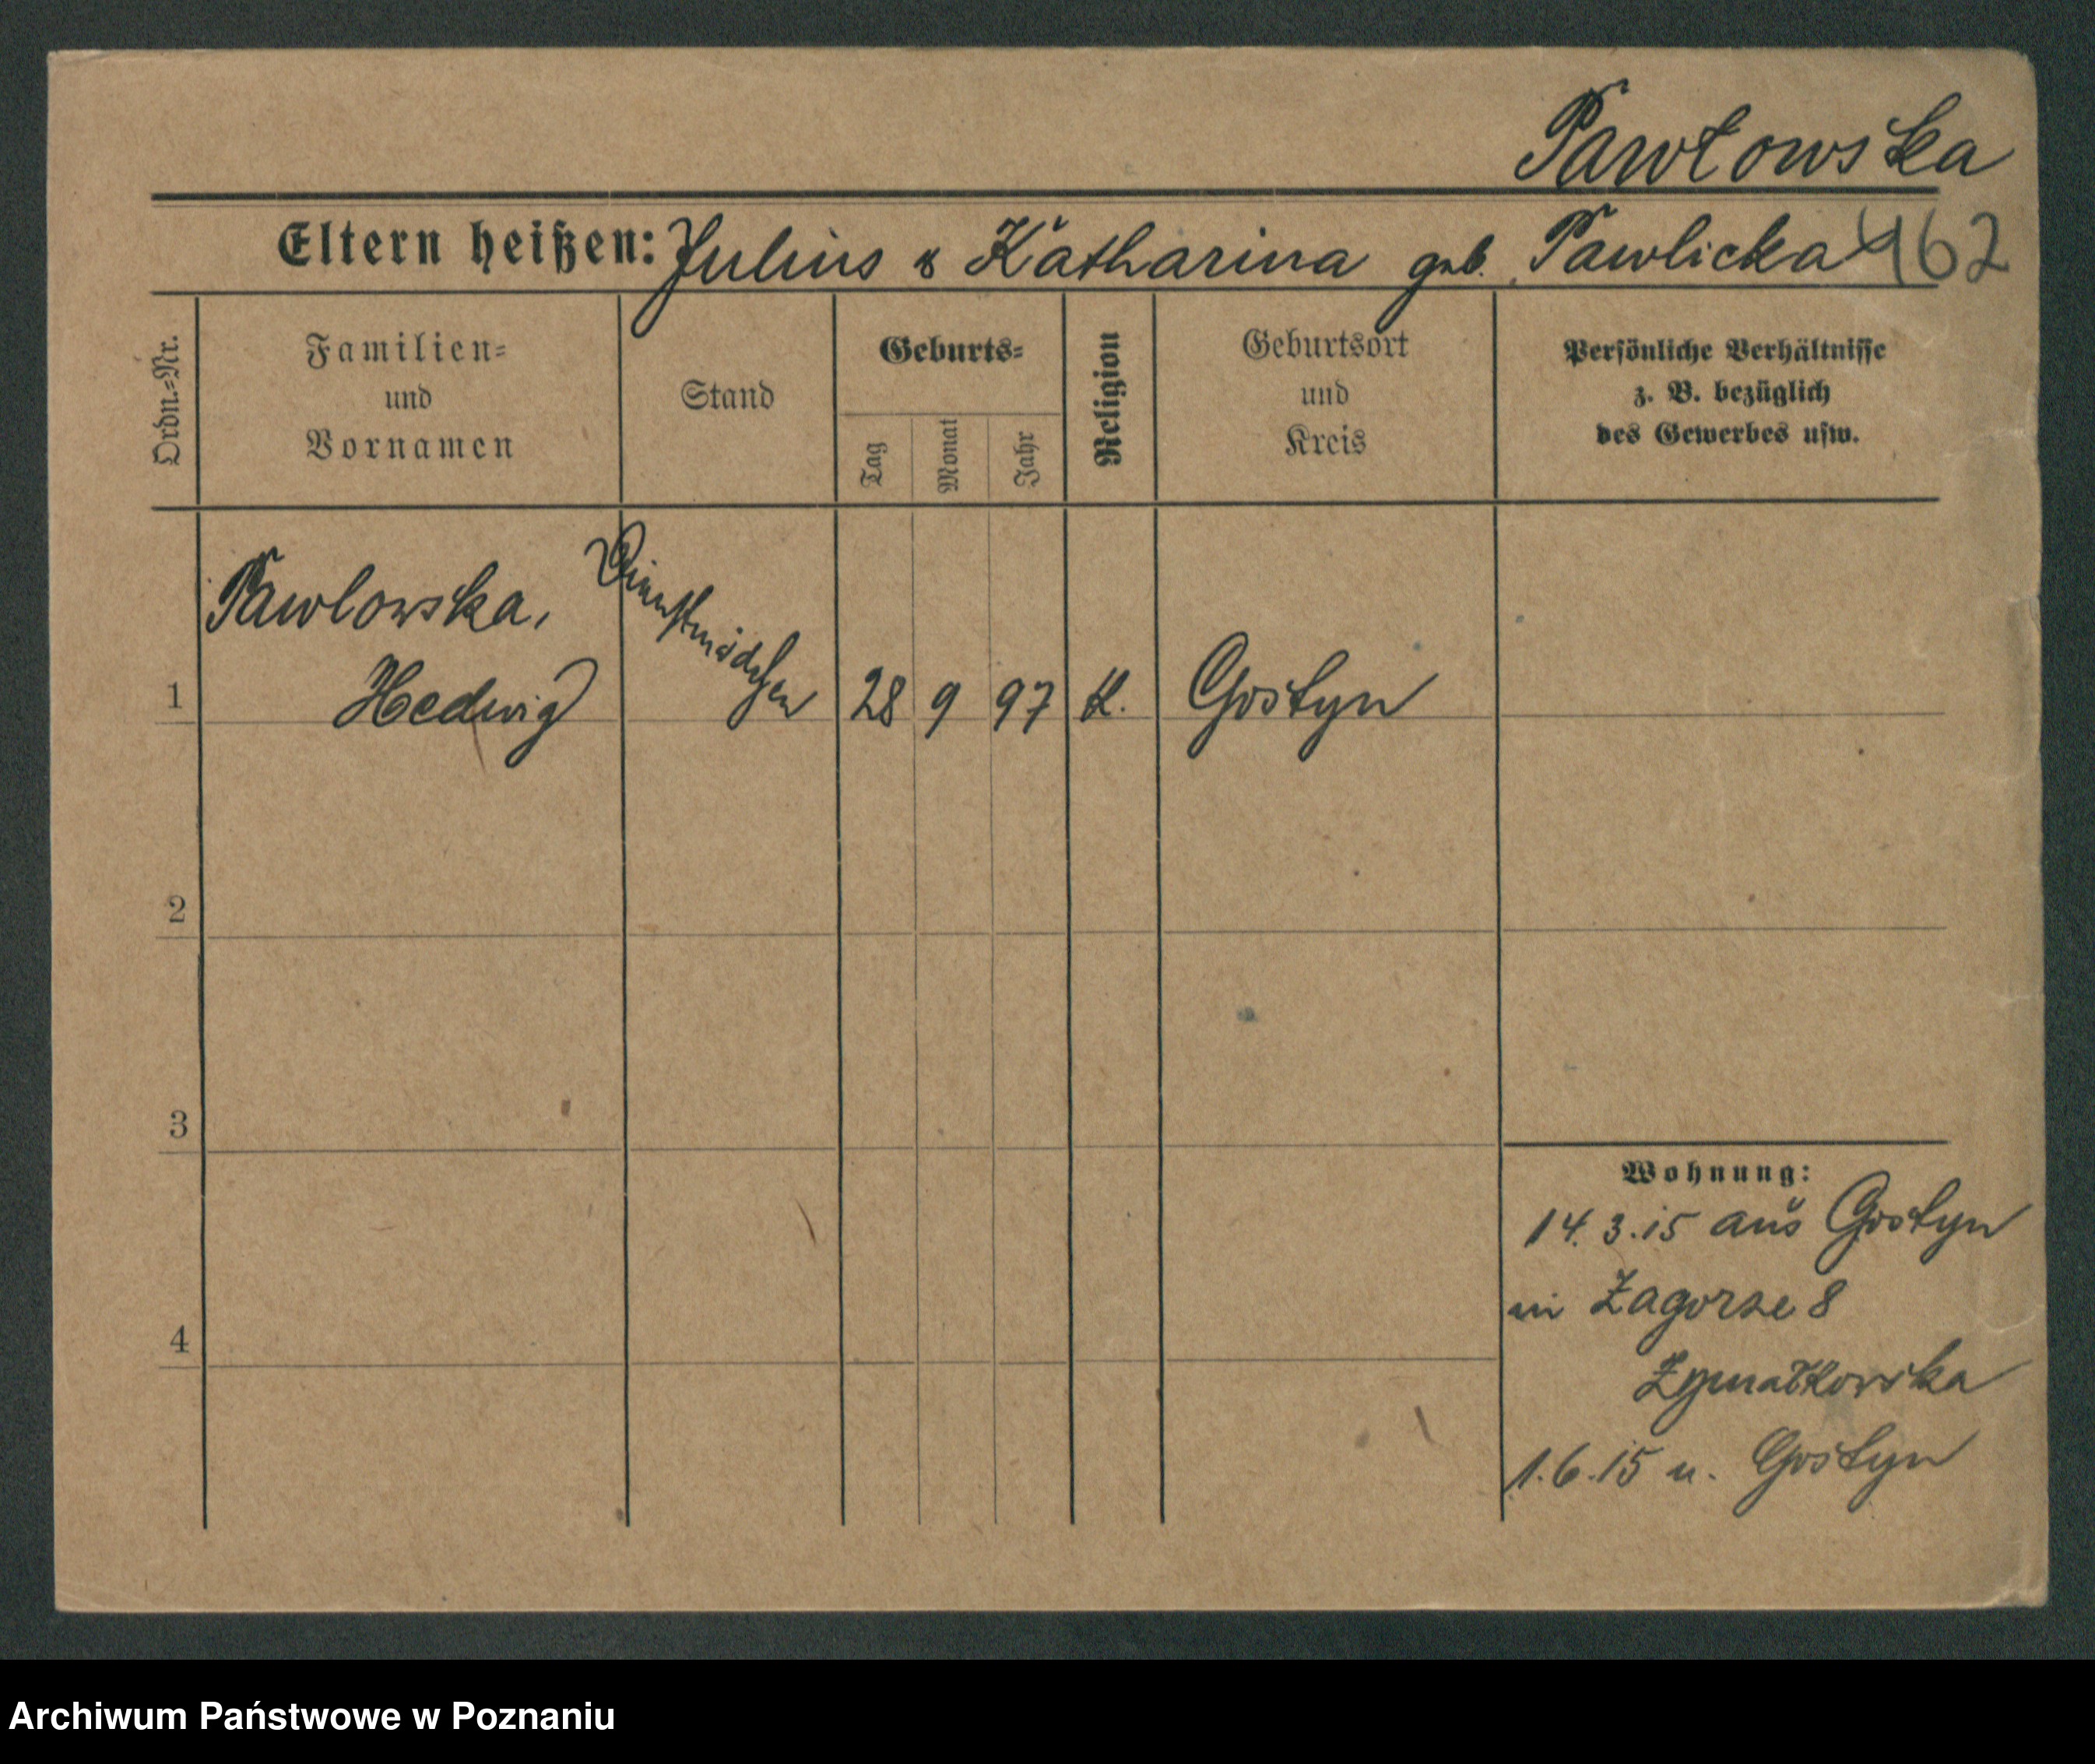 Pawłowska
Eltern heißen: Julius & Katharina geb. Pawlicka
462
Ordn.=Nr.
Familien=
und
Vornamen
Stand
Geburts=
Tag
Monat
Jahr
Religion
Geburtsort
und
Kreis
Persönliche Verhältnisse
z. B. bezüglich
des Gewerbes usw.
1 Pawlowska, Hedwig Dienstmädchen 28 9 97 k. Gostyn
2
3
4
Wohnung:
14.3.15 aus Gostyn
in Zagorze 8
1.6.15 n. Gostyn
Archiwum Państwowe w Poznaniu